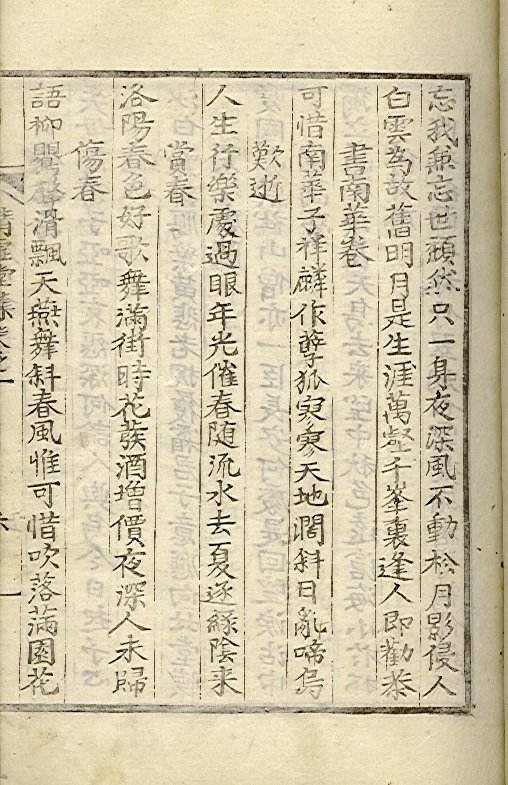 忘我兼忘世頹然只一身夜深風不動松月影侵人
白雲爲故舊明月是生涯萬壑千峯裏逢人即勸茶
書南華卷
可惜南華子祥麟作孽狐寥寥天地闊斜日亂啼烏
歎逝
人生行樂處過眼年光催春随流水去夏逐綠陰来
賞春
洛陽春色好歌舞滿街時花發酒增價夜深人未歸
傷春
語柳鸎聲滑飄天燕舞斜春風惟可惜吹落滿園花
清虛堂集卷之一